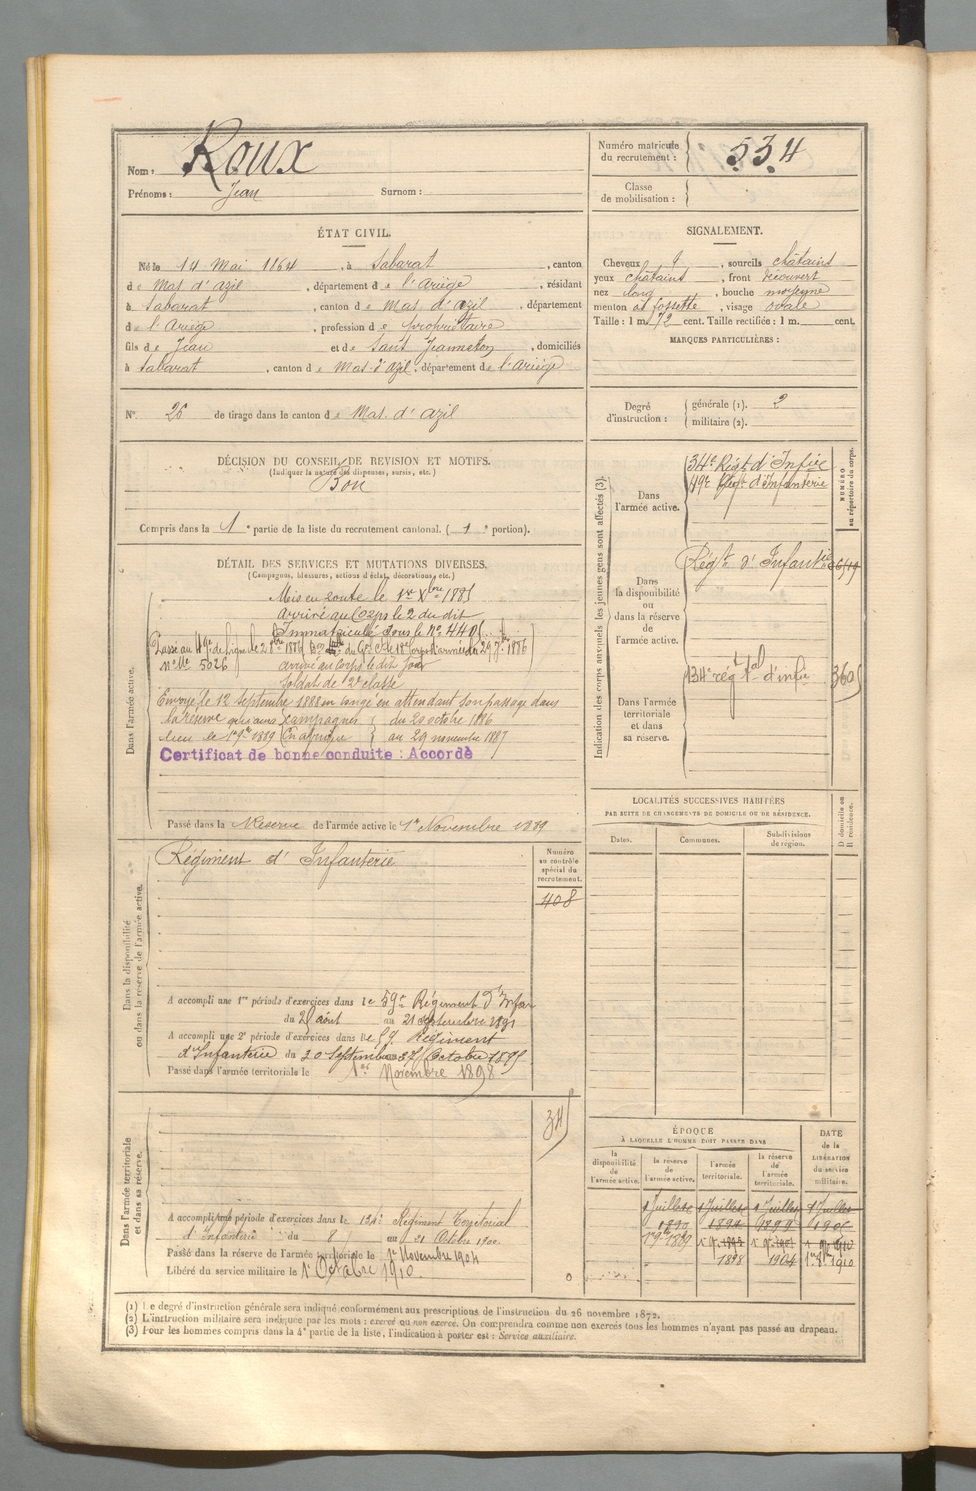 Nom : Roux
Prénoms : Jean Surnom :
Numéro matricule du recrutement : 534
Classe de mobilisation :
ÉTAT CIVIL.
Né le 14 Mai 1864, à Sabarat, canton
de Mas d'Azil, département de l'Ariège, résidant
à Sabarat, canton de Mas d'Azil, département
de l'Ariège, profession de propriétaire
fils de Jean et de Sant Jeanneton, domiciliés
à Sabarat, canton de Mas-d'Azil, département de l'Ariège
SIGNALEMENT.
Cheveux, sourcils châtains
yeux châtains, front découvert
nez long, bouche moyenne
menton à fossette, visage ovale
Taille : 1 m. 72 cent. Taille rectifiée : 1 m. cent.
MARQUES PARTICULIÈRES :
N° 26 de tirage dans le canton de Mas. d'Azil
Degré d'instruction : générale (1). 2
militaire (2).
DÉCISION DU CONSEIL DE REVISION ET MOTIFS.
(Indiquer la nature des dispenses, sursis, etc.)
Bon
Compris dans la 1e partie de la liste du recrutement cantonal. (1e portion).
DÉTAIL DES SERVICES ET MUTATIONS DIVERSES.
(Campagnes, blessures, actions d'éclat, décorations, etc.)
Dans l'armée active.
Mis en route le 1er Xbre 1885
arrivé au Corps le 2 du dit
Immatriculé sous le N° 440
Passé au 49e de ligne le 1886
n° Mle 5026 arrivé au corps le dit jour
Soldat de 2e classe
Envoyé le 12 septembre 1888 en congé en attendant son passage dans
la réserve qui aura campagnes du 20 octobre 1886
lieu le 1889 En afrique au 29 novembre 1887
Certificat de bonne conduite : Accordé
Passé dans la Réserve de l'armée active le 1er Novembre 1889
Dans la disponibilité ou dans la réserve de l'armée active.
Régiment d'Infanterie
Numéro au contrôle spécial du recrutement.
408
A accompli une 1re période d'exercices dans le 59e Régiment d'Infan
du août au 21 septembre 1891
A accompli une 2e période d'exercices dans le 59 Régiment
d'Infanterie du 20 Septembre Octobre 1895
Passé dans l'armée territoriale le 1er Novembre 1898
Dans l'armée territoriale et dans sa réserve.
A accompli une période d'exercices dans le 134e Régiment Territorial
d'Infanterie du 8 au 21 Octobre 1900.
Passé dans la réserve de l'armée territoriale le 1er Novembre 1904
Libéré du service militaire le 1er Octobre 1910.
Indication des corps auxquels les jeunes gens sont affectés (3).
NUMÉRO au répertoire du corps.
Dans l'armée active.
34e Régt d'Infie
49e Régt d'Infanterie
Dans la disponibilité ou dans la réserve de l'armée active.
Régt d'Infanterie
Dans l'armée territoriale et dans sa réserve.
134e régt tal d'infie
LOCALITÉS SUCCESSIVES HABITÉES
PAR SUITE DE CHANGEMENTS DE DOMICILE OU DE RÉSIDENCE.
Dates. Communes. Subdivisions de région. D domicile ou R résidence.
ÉPOQUE
À LAQUELLE L'HOMME DOIT PASSER DANS
la disponibilité de l'armée active. la réserve de l'armée active. l'armée territoriale. la réserve de l'armée territoriale.
DATE de la LIBÉRATION du service militaire.
1 Juillet 1 Juillet 1 Juillet 1 Juillet
1890 1899
1889 1910
1898 1904 1910
(1) Le degré d'instruction générale sera indiqué conformément aux prescriptions de l'instruction du 26 novembre 1872.
(2) L'instruction militaire sera indiquée par les mots : exercé ou non exercé. On comprendra comme non exercés tous les hommes n'ayant pas passé au drapeau.
(3) Pour les hommes compris dans la 4e partie de la liste, l'indication à porter est : Service auxiliaire.